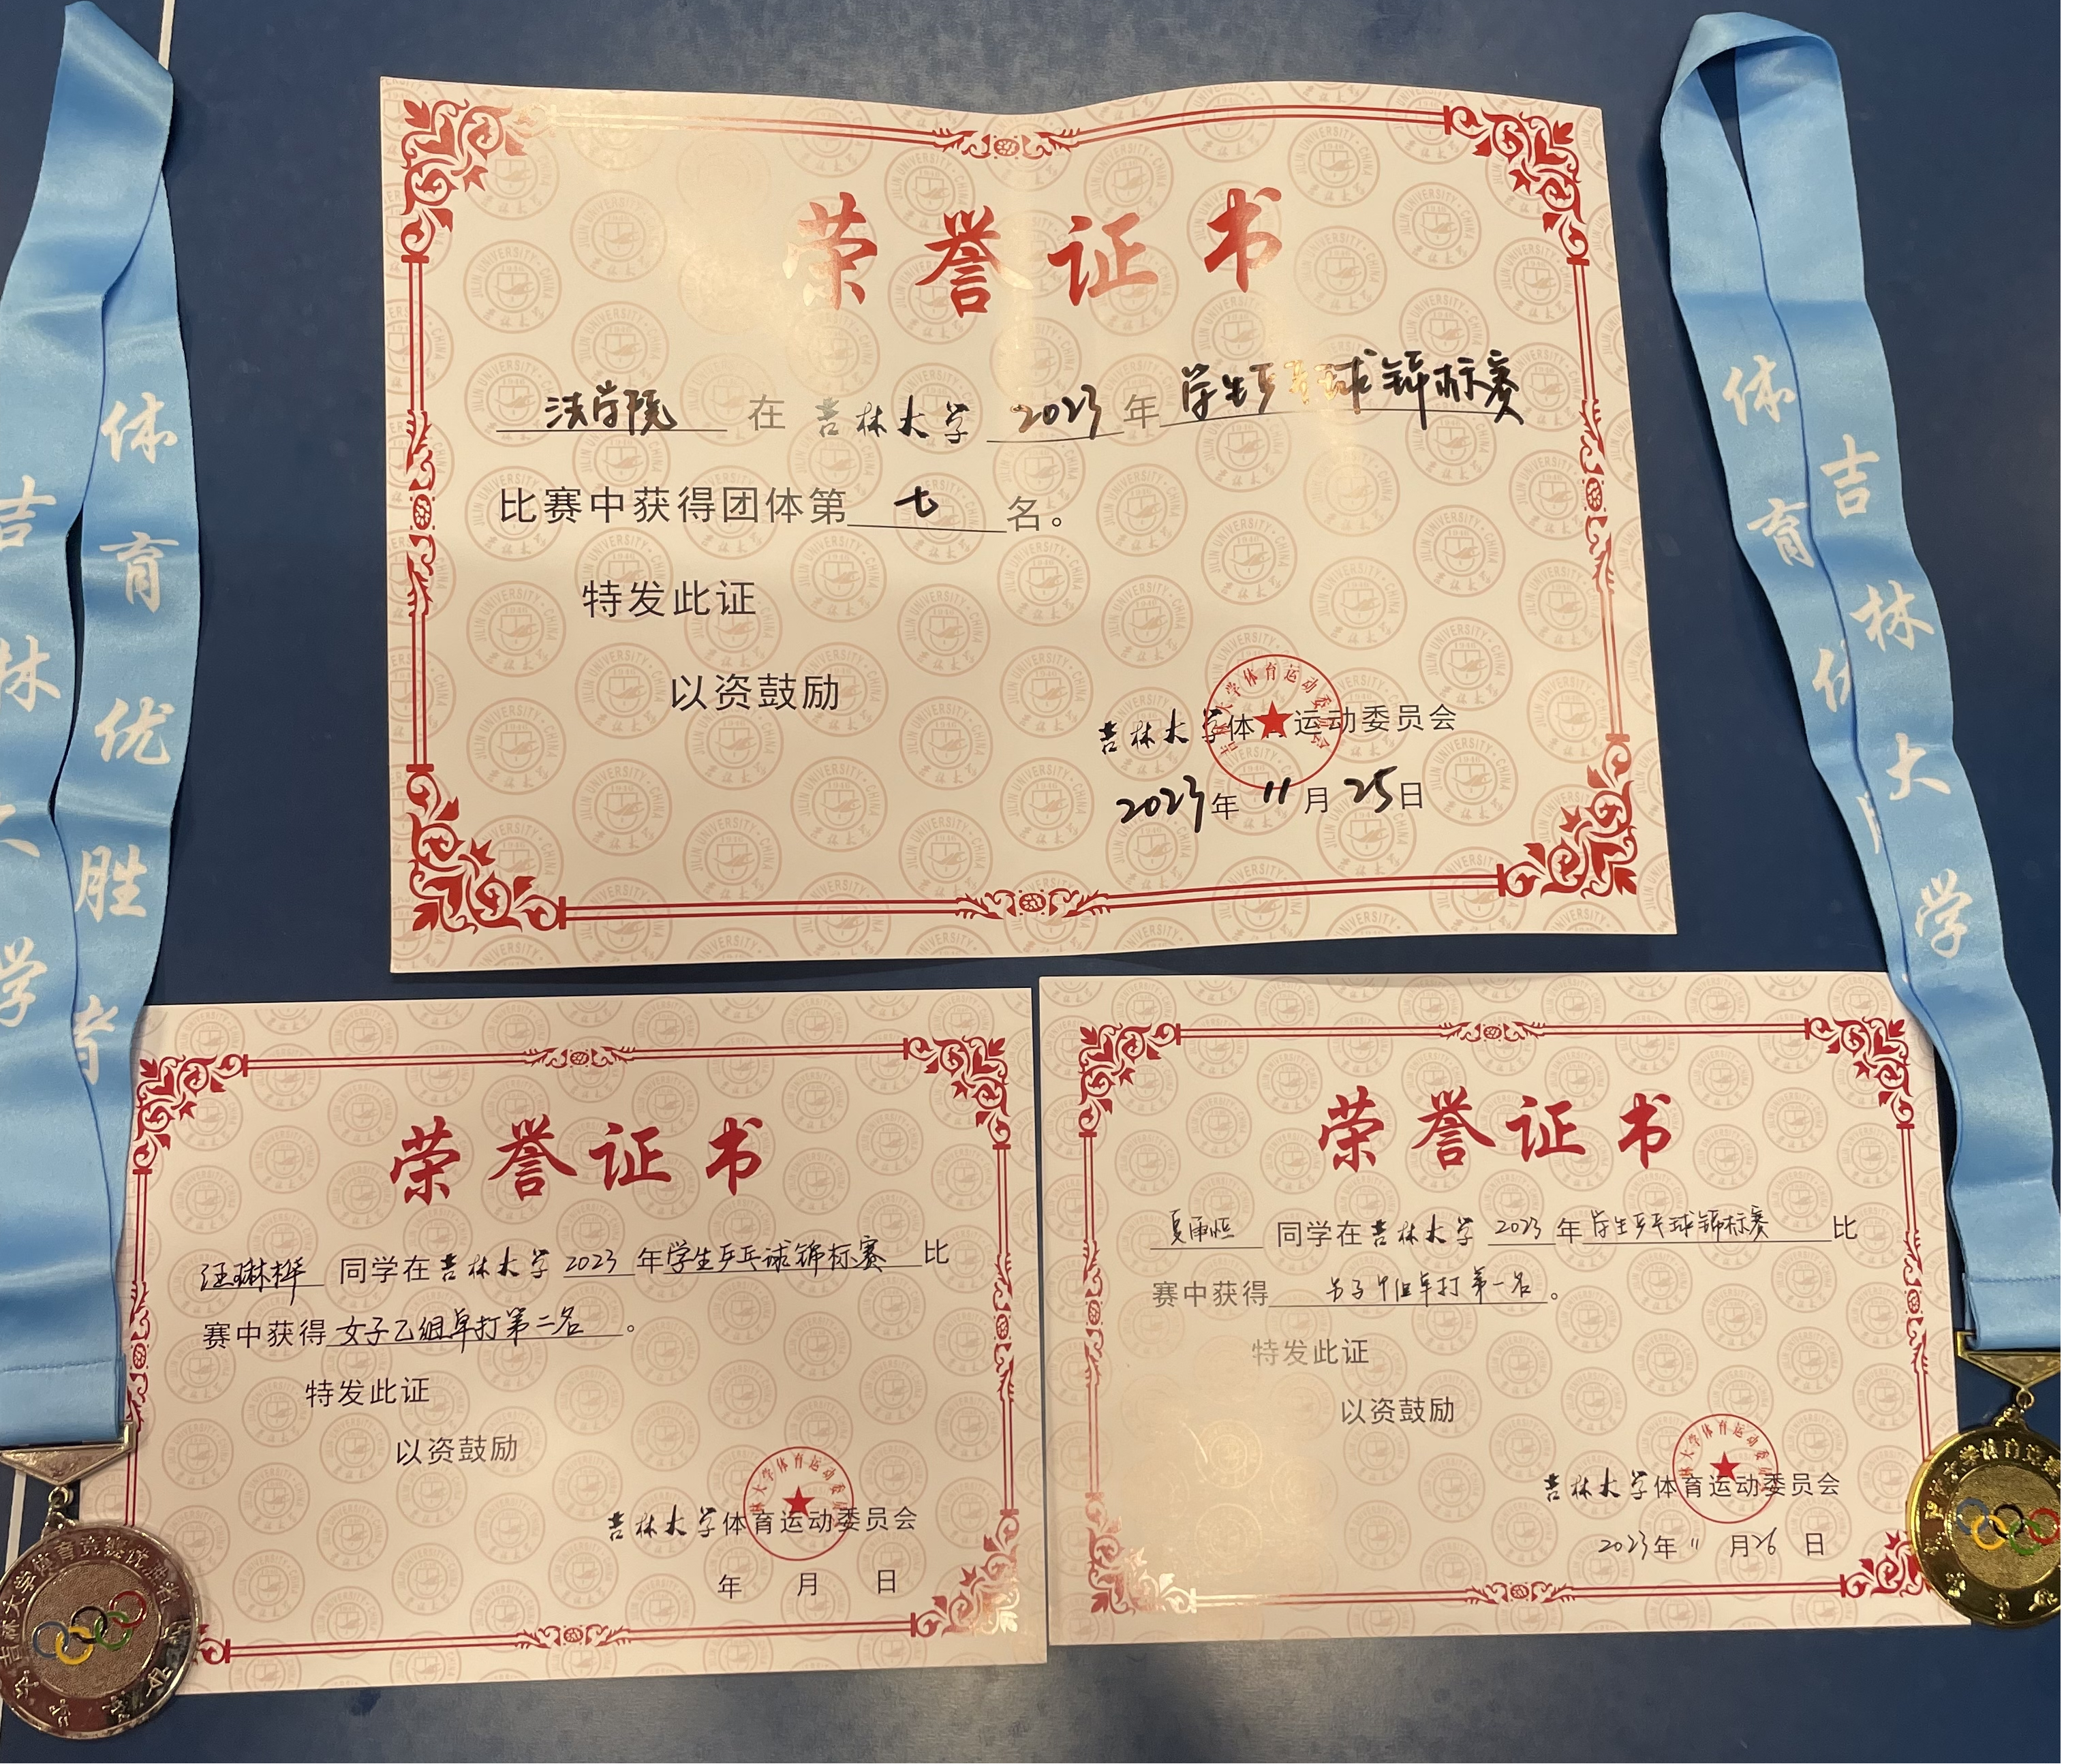 荣誉证书
法学院 在 吉林大学 2023 年 学生乒乓球锦标赛
比赛中获得团体第 七 名。
特发此证
以资鼓励
吉林大学体育运动委员会
2023年 11 月 25日
荣誉证书
汪琳桦 同学在吉林大学 2023 年学生乒乓球锦标赛 比
赛中获得 女子乙组单打第二名 。
特发此证
以资鼓励
吉林大学体育运动委员会
年 月 日
荣誉证书
同学在吉林大学 2023 年 学生乒乓球锦标赛 比
赛中获得 男子甲组单打第一名 。
特发此证
以资鼓励
吉林大学体育运动委员会
2023年 11 月26 日
吉林大学
体育优胜者
体育优
吉林大学
JILIN UNIVERSITY·CHINA
1946